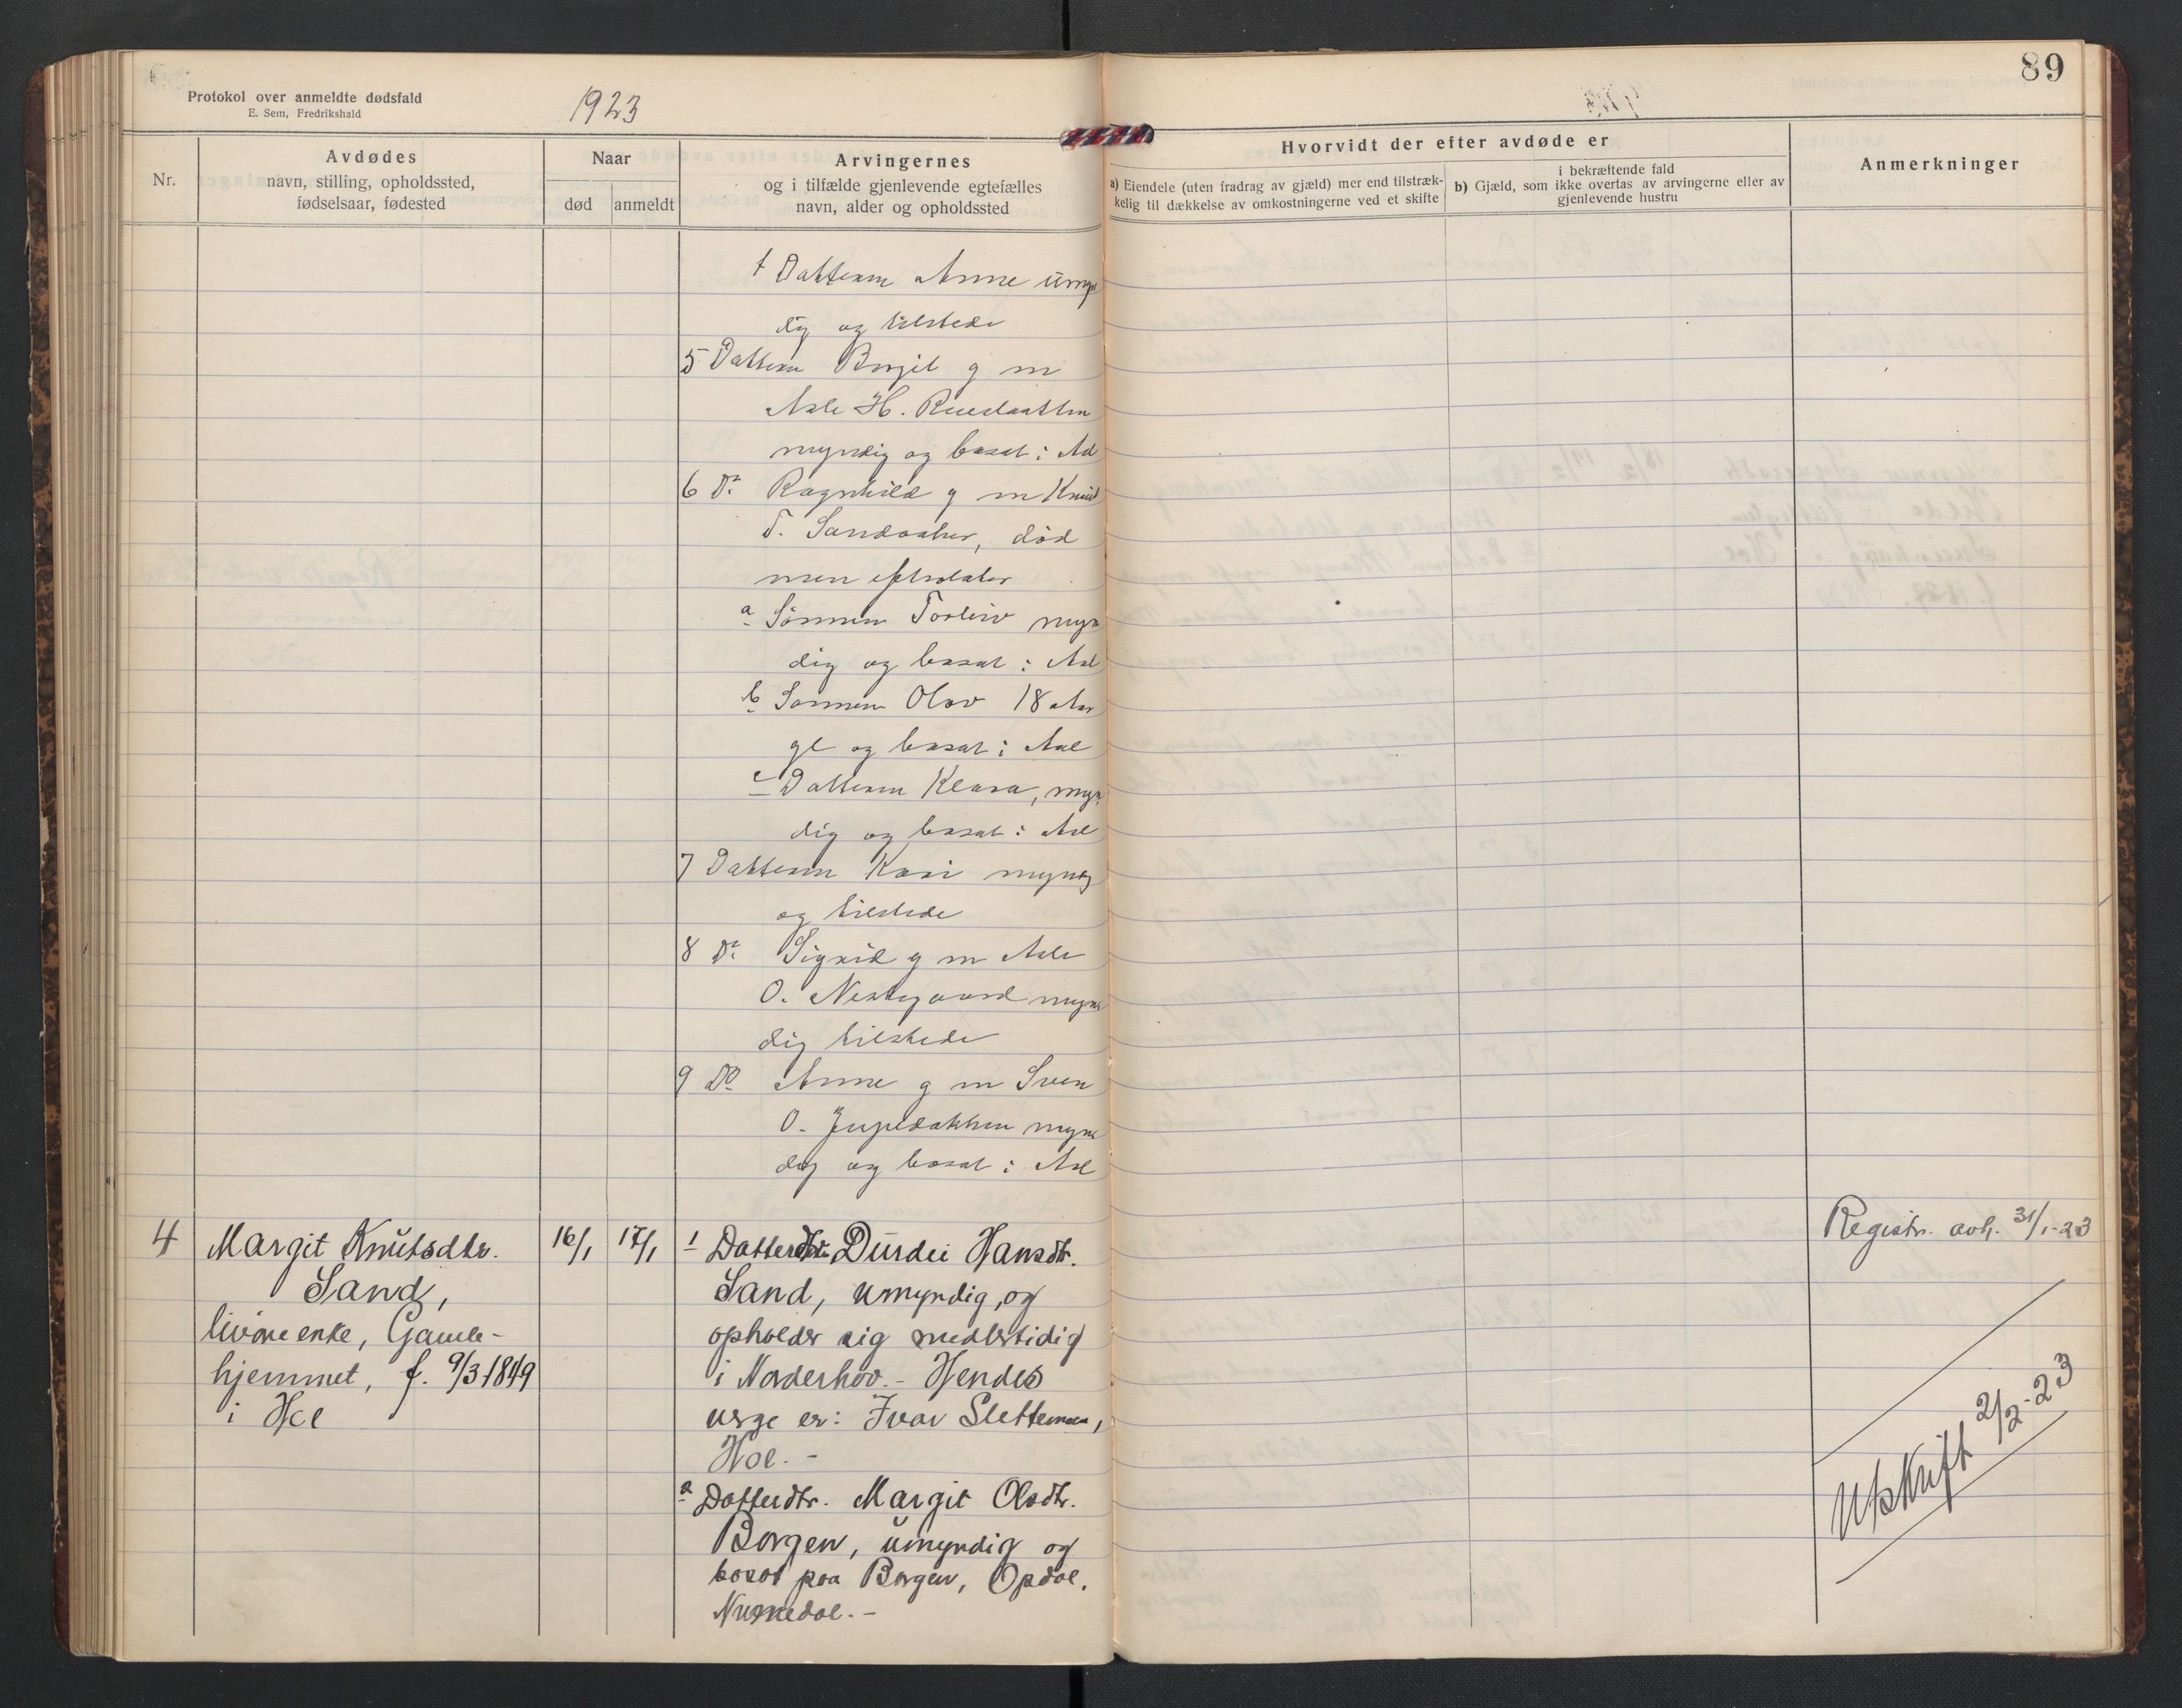 89
Protokol over anmeldte dødsfald
E. Sem, Fredrikshald
1923
Nr.
Avdødes
navn, stilling, opholdssted,
fødselsaar, fødested
Naar
død
anmeldt
Arvingernes
og i tilfælde gjenlevende egtefælles
navn, alder og opholdssted
Hvorvidt der efter avdøde er
a) Eiendele (uten fradrag av gjæld) mer end tilstræk-
kelig til dækkelse av omkostningerne ved et skifte
i bekræftende fald
b) Gjæld, som ikke overtas av arvingerne eller av
gjenlevende hustru
Anmerkninger
Datteren Anne
dig og tilstede
5 Datteren Birgit g m
Asle H.
myndig og bosat i Aal
6 Do Ragnhild g m Knut
T. død
men efterlater
a Sønnen Torleiv myn
dig og bosat i Aal
b Sønnen Olav 18 Aar
gl og bosat i Aal
c Datteren Klara, myn
dig og bosat i Aal
7 Datteren Kari myndig
og tilstede
8 Do Sigrid g m Asle
O. Nestegaard myn
dig tilstede
9 Do Anne g m Sven
O. myn
dig og bosat i Aal
4 Margit Knutsdtr.
Sand,
livøre enke, Gamle-
hjemmet, f. 9/3 1849
i Hol
16/1 17/1
1 Durdei Hansdtr.
Sand, umyndig, og
opholder sig midlertidig
i Norderhov. - Hendes
verge er: Ivar Slettemoen,
Hol. -
2 Datterdtr. Margit Olsdtr.
Borgen, umyndig og
bosat paa Borgen, Opdal,
Numedal. -
Registr. avh. 31/1-23
Utskrift 2/2-23